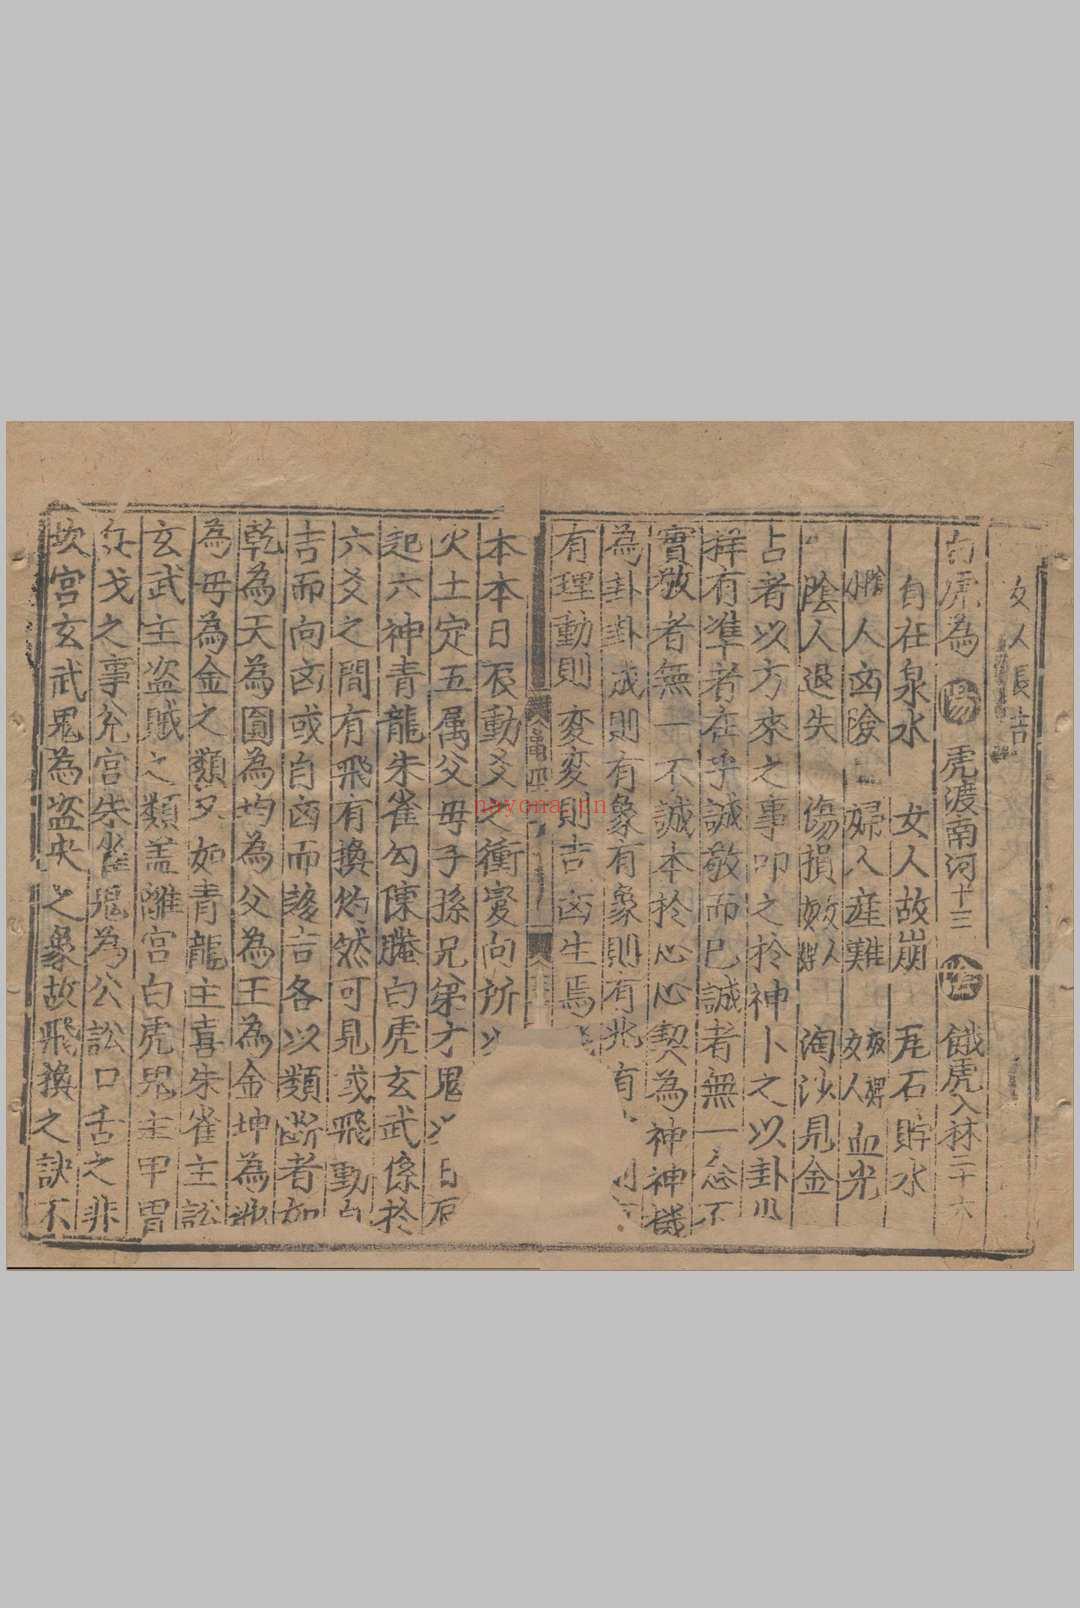 女人長吉
白虎為 陽 虎渡南河十三 陰 餓虎入林二十六
自在泉水 女人故崩 瓦石貯水
人凶險 婦人産難 女人 血光
陰人退失 傷損 人 淘沙見金
占者以方來之事叩之於神卜之以卦以
祥有準者在乎誠敬而已誠者無一念不
實敬者無一不誠本於心心契為神神機
為卦卦成則有象有象則有兆有
有理動則変変則吉凶生焉
六龜四
nayona.cn
本本日辰動爻之衝變向所以
火土定五属父母子孫兄弟才鬼 日辰
起六神青龍朱雀勾陳螣白虎玄武係於
六爻之間有飛有換灼然可見或飛動
吉而向凶或自凶而談吉各以類斷者如
乾為天為圓為均為父為王為金坤為地
為母為金之類又如青龍主喜朱雀主訟
玄武主盗賊之類盖離宮白虎鬼主甲冑
兵戈之事兊宮朱雀鬼為公訟口舌之非
坎宮玄武鬼為盗失之象故飛換之訣不